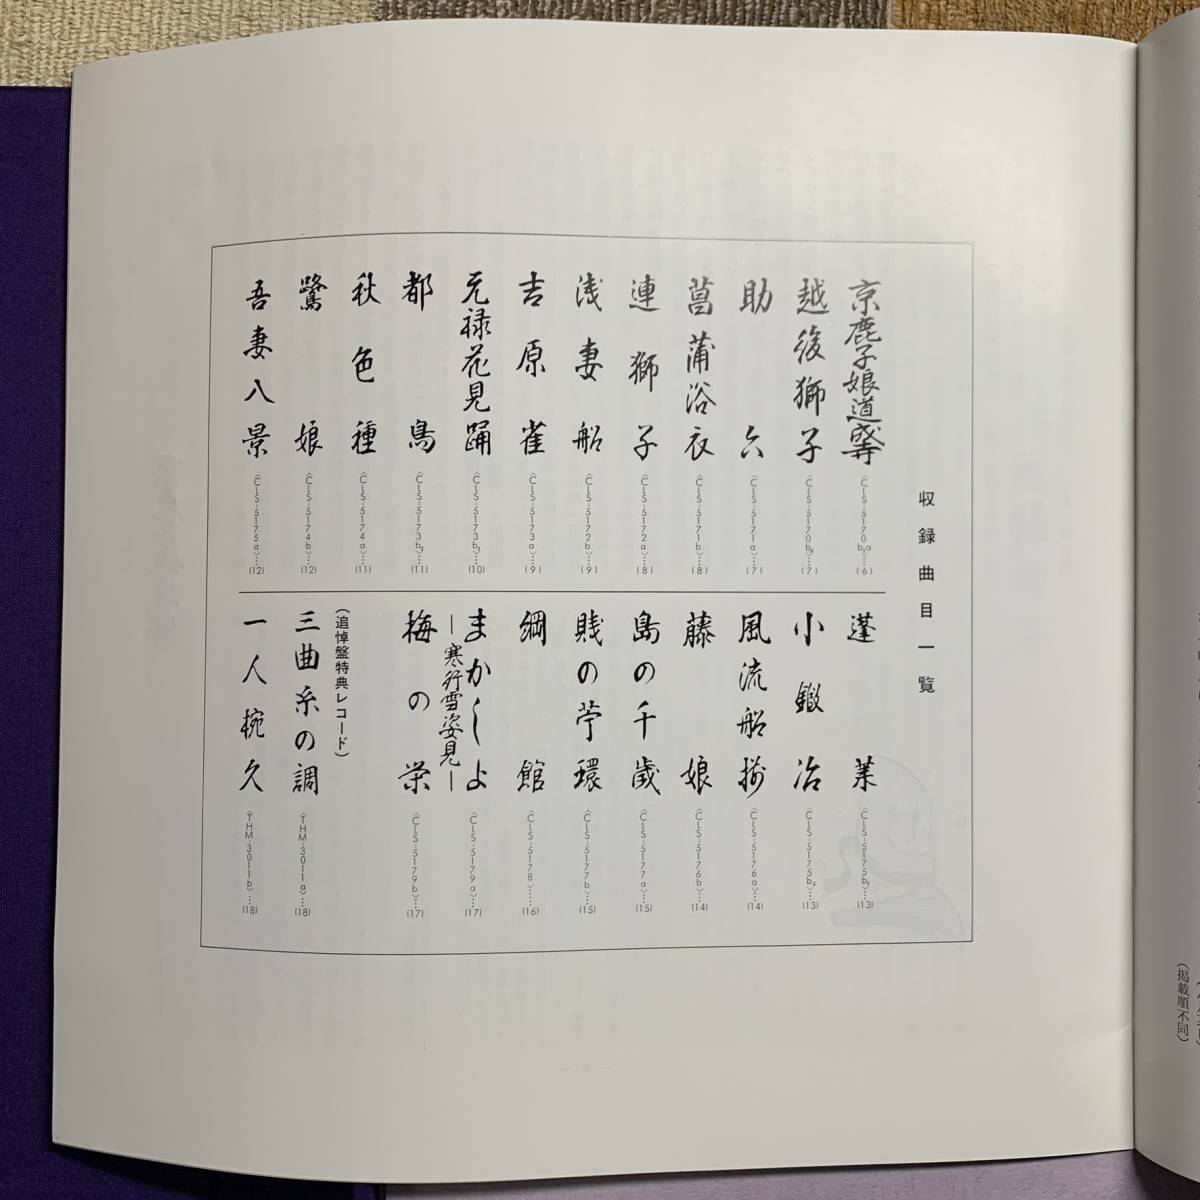 収録曲目一覧
京鹿子娘道成寺〈CLS-5170b₁a〉…(6)
越後獅子〈CLS-5170b₂〉…(7)
助六〈CLS-5171a〉…(7)
菖蒲浴衣〈CLS-5171b〉…(8)
連獅子〈CLS-5172a〉…(8)
浅妻船〈CLS-5172b〉…(9)
吉原雀〈CLS-5173a〉…(9)
元禄花見踊〈CLS-5173b₁〉…(10)
都鳥〈CLS-5173b₂〉…(11)
秋色種〈CLS-5174a〉…(11)
鷺娘〈CLS-5174b〉…(12)
吾妻八景〈CLS-5175a〉…(12)
蓬莱〈CLS-5175b₁〉…(13)
小鍛冶〈CLS-5175b₂〉…(13)
風流船揃〈CLS-5176a〉…(14)
藤娘〈CLS-5176b〉…(14)
島の千歳〈CLS-5177a〉…(15)
賤の苧環〈CLS-5177b〉…(15)
綱館〈CLS-5178〉…(16)
まかしよ〈CLS-5179a〉…(17)
―寒行雪姿見―
梅の栄〈CLS-5179b〉…(17)
(追悼盤特典レコード)
三曲糸の調〈THM-3011a〉…(18)
一人椀久〈THM-3011b〉…(18)
(掲載順不同)